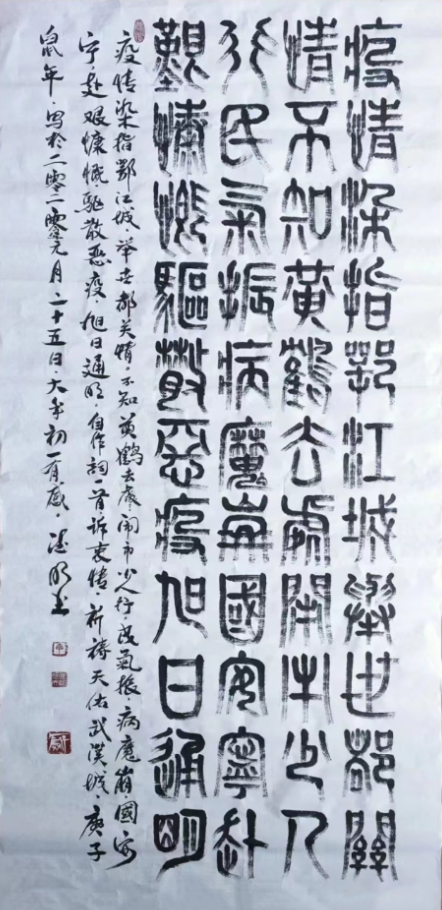 疫情染指鄂江城舉世都關
情不知黃鶴去處鬧市少人
行民氣振病魔崩國安寧赴
艱慷慨驅散惡疫旭日通明
疫情染指鄂江城，举世都关情，不知黄鹤去處闹市少人行，民氣振，病魔崩國安
宁，赴艰慷慨驱散恶疫，旭日通明，自作词一首诉衷情，祈祷天佑武漢城，庚子
鼠年，写於二零二零元月二十五日，大年初一有感，明书